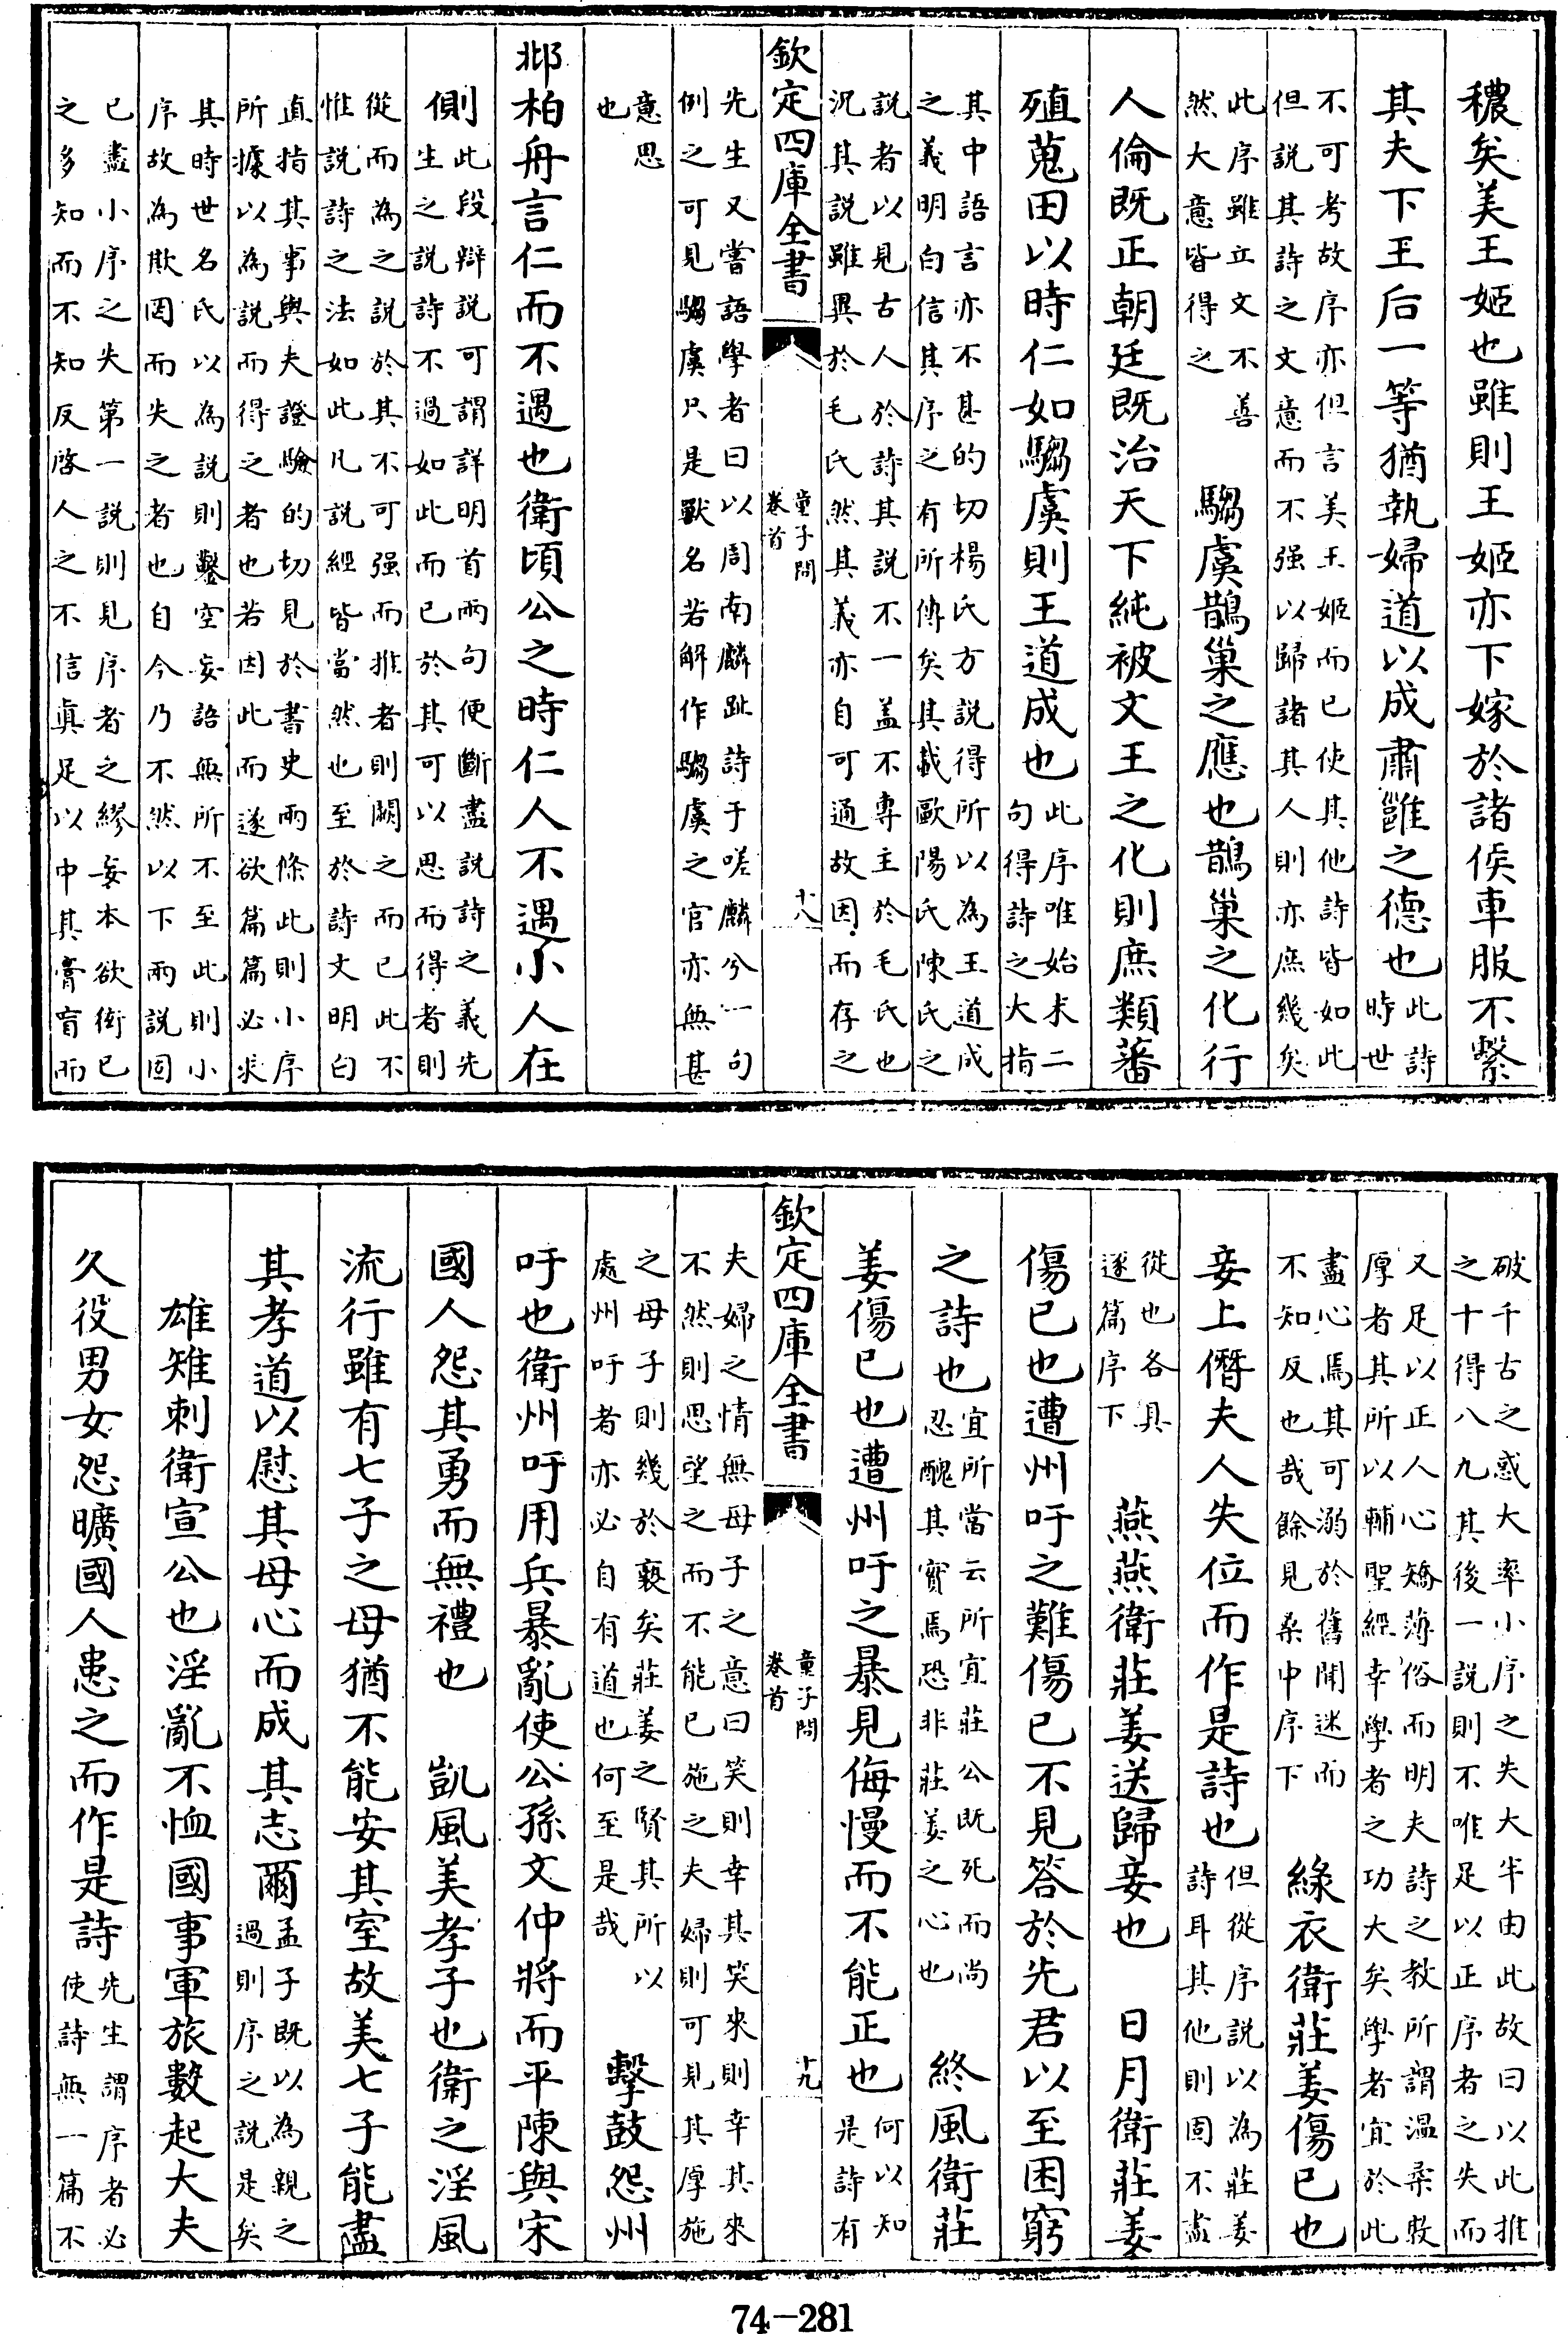 穠矣美王姬也雖則王姬亦下嫁於諸侯車服不繫
其夫下王后一等猶執婦道以成肅雝之德也此詩
時世
不可考故序亦但言美王姬而已使其他詩皆如此
但說其詩之文意而不强以歸諸其人則亦庶幾矣
此序雖立文不善
然大意皆得之
騶虞鵲巢之應也鵲巢之化行
人倫既正朝廷既治天下純被文王之化則庶類蕃
殖蒐田以時仁如騶虞則王道成也此序唯始末二
句得詩之大指
其中語言亦不甚的切楊氏方說得所以為王道成
之義明白信其序之有所傳矣其載歐陽氏陳氏之
說者以見古人於詩其說不一盖不專主於毛氏也
況其說雖異於毛氏然其義亦自可通故因而存之
欽定四庫全書
童子問
卷首
十八
先生又嘗語學者曰以周南麟趾詩于嗟麟兮一句
例之可見騶虞只是獸名若解作騶虞之官亦無甚
意思
也
邶柏舟言仁而不遇也衛頃公之時仁人不遇小人在
側此段辯說可謂詳明首兩句便斷盡說詩之義先
生之說詩不過如此而已於其可以思而得者則
從而為之說於其不可强而推者則闕之而已此不
惟說詩之法如此凡說經皆當然也至於詩文明白
直指其事與夫證驗的切見於書史兩條此則小序
所據以為說而得之者也若因此而遂欲篇篇必求
其時世名氏以為說則鑿空妄語無所不至此則小
序故為欺罔而失之者也自今乃不然以下兩說固
已盡小序之失第一說則見序者之繆妄本欲衒已
之多知而不知反啓人之不信眞足以中其膏肓而
破千古之惑大率小序之失大半由此故曰以此推
之十得八九其後一說則不唯足以正序者之失而
又足以正人心矯薄俗而明夫詩之教所謂溫柔敦
厚者其所以輔聖經幸學者之功大矣學者宜於此
盡心焉其可溺於舊聞迷而
不知反也哉餘見桑中序下
緑衣衛莊姜傷已也
妾上僭夫人失位而作是詩也但從序說以為莊姜
詩耳其他則固不盡
從也各具
逐篇序下
燕燕衛莊姜送歸妾也
日月衛莊姜
傷已也遭州吁之難傷已不見答於先君以至困窮
之詩也宜所當云所宜莊公既死而尚
忍醜其實焉恐非莊姜之心也
終風衛莊
姜傷已也遭州吁之暴見侮慢而不能正也何以知
是詩有
欽定四庫全書
童子問
卷首
十九
夫婦之情無母子之意曰笑則幸其笑來則幸其來
不然則思望之而不能已施之夫婦則可見其厚施
之母子則幾於䙝矣莊姜之賢其所以
處州吁者亦必自有道也何至是哉
擊鼓怨州
吁也衛州吁用兵暴亂使公孫文仲將而平陳與宋
國人怨其勇而無禮也
凱風美孝子也衛之淫風
流行雖有七子之母猶不能安其室故美七子能盡
其孝道以慰其母心而成其志爾孟子既以為親之
過則序之說是矣
雄雉刺衛宣公也淫亂不恤國事軍旅數起大夫
久役男女怨曠國人患之而作是詩先生謂序者必
使詩無一篇不
74-281